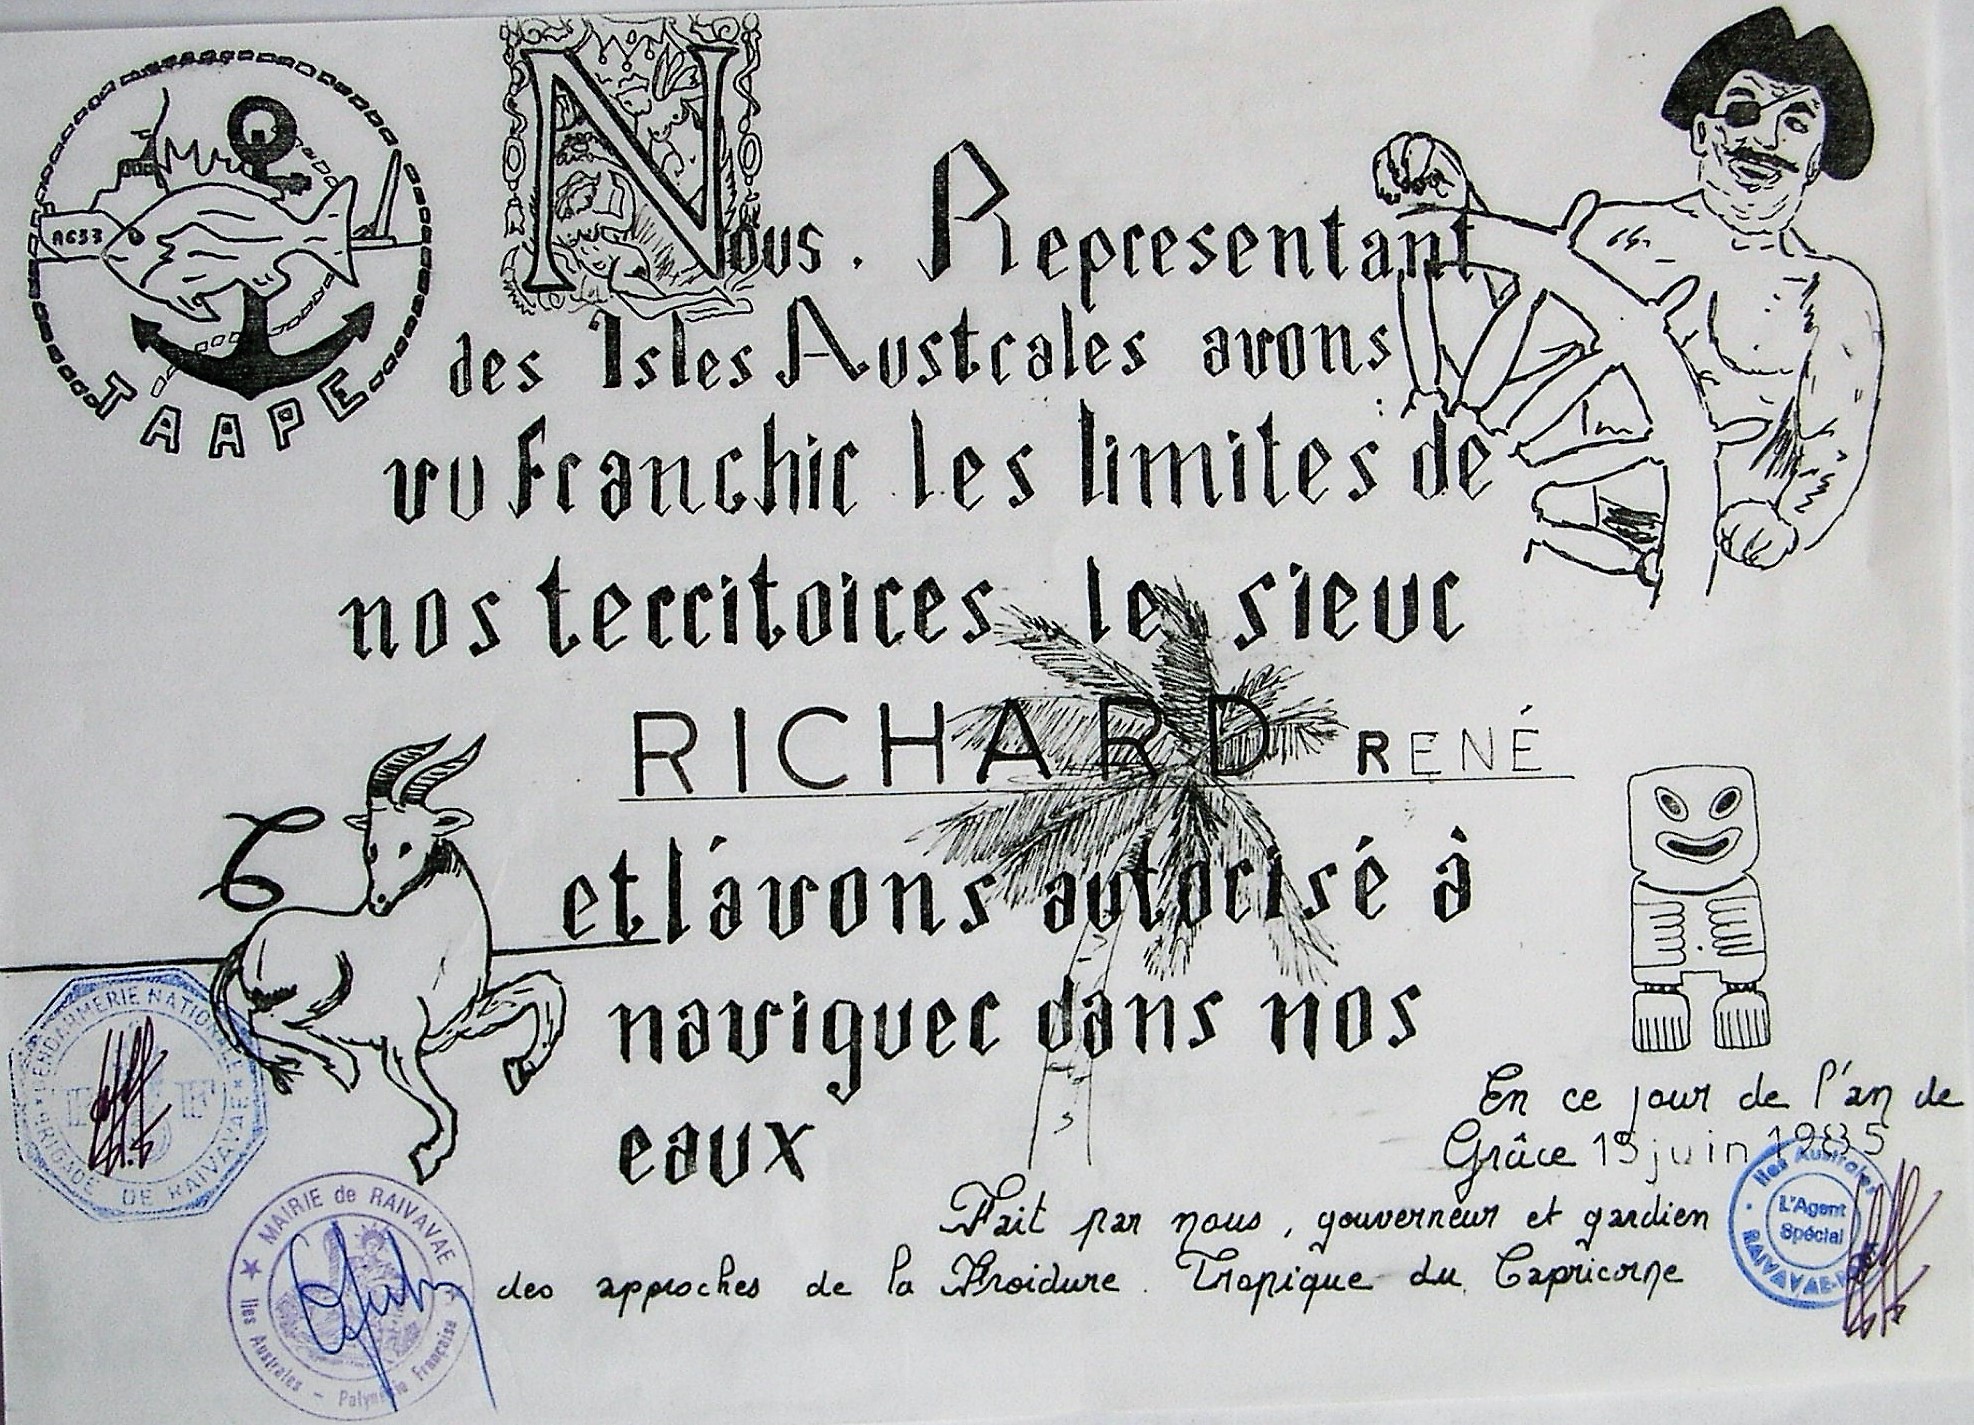 A633
TAAPE
Nous. Representant
des Isles Australes avons
vu franchir les limites de
nos territoires le sieur
RICHARD RENÉ
et l'avons autorisé à
naviguer dans nos
eaux
En ce jour de l'an de
Grâce 15 juin 1985
Fait par nous, gouverneur et gardien
des approches de la Froidure. Tropique du Capricorne
GENDARMERIE NATIONALE
BRIGADE DE RAIVAVAE
MAIRIE de RAIVAVAE
Iles Australes - Polynésie Française
Iles Australes
L'Agent
Spécial